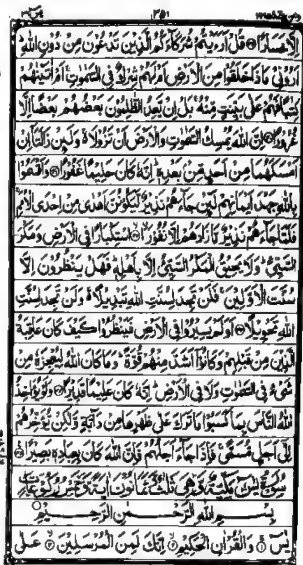 إِلَّا خَسَارًا ۝ قُلْ أَرَءَيْتُمْ شُرَكَآءَكُمُ الَّذِينَ تَدْعُونَ مِنْ دُونِ اللَّهِ
أَرُونِي مَاذَا خَلَقُوا مِنَ الْأَرْضِ أَمْ لَهُمْ شِرْكٌ فِي السَّمَوٰتِ أَمْ اٰتَيْنٰهُمْ
كِتٰبًا فَهُمْ عَلٰى بَيِّنَتٍ مِّنْهُ بَلْ إِنْ يَّعِدُ الظّٰلِمُونَ بَعْضُهُمْ بَعْضًا إِلَّا
غُرُورًا ۝ إِنَّ اللَّهَ يُمْسِكُ السَّمٰوٰتِ وَالْأَرْضَ أَنْ تَزُولَا وَلَئِنْ زَالَتَا إِنْ
أَمْسَكَهُمَا مِنْ أَحَدٍ مِّنْ بَعْدِهٖ إِنَّهٗ كَانَ حَلِيمًا غَفُورًا ۝ وَأَقْسَمُوا
بِاللَّهِ جَهْدَ أَيْمَانِهِمْ لَئِنْ جَآءَهُمْ نَذِيرٌ لَّيَكُونُنَّ أَهْدٰى مِنْ إِحْدَى الْأُمَمِ
فَلَمَّا جَآءَهُمْ نَذِيرٌ مَّا زَادَهُمْ إِلَّا نُفُورًا ۝ اسْتِكْبَارًا فِي الْأَرْضِ وَمَكْرَ
السَّيِّئِ وَلَا يَحِيقُ الْمَكْرُ السَّيِّئُ إِلَّا بِأَهْلِهٖ فَهَلْ يَنْظُرُونَ إِلَّا
سُنَّتَ الْأَوَّلِينَ فَلَنْ تَجِدَ لِسُنَّتِ اللَّهِ تَبْدِيلًا وَلَنْ تَجِدَ لِسُنَّتِ
اللَّهِ تَحْوِيلًا ۝ أَوَلَمْ يَسِيرُوا فِي الْأَرْضِ فَيَنْظُرُوا كَيْفَ كَانَ عَاقِبَةُ
الَّذِينَ مِنْ قَبْلِهِمْ وَكَانُوا أَشَدَّ مِنْهُمْ قُوَّةً وَمَا كَانَ اللَّهُ لِيُعْجِزَهٗ مِنْ
شَيْءٍ فِي السَّمٰوٰتِ وَلَا فِي الْأَرْضِ إِنَّهٗ كَانَ عَلِيمًا قَدِيرًا ۝ وَلَوْ يُؤَاخِذُ
اللَّهُ النَّاسَ بِمَا كَسَبُوا مَا تَرَكَ عَلٰى ظَهْرِهَا مِنْ دَآبَّةٍ وَّلٰكِنْ يُّؤَخِّرُهُمْ
إِلٰى أَجَلٍ مُّسَمًّى فَإِذَا جَآءَ أَجَلُهُمْ فَإِنَّ اللَّهَ كَانَ بِعِبَادِهٖ بَصِيرًا ۝
بِسْمِ اللَّهِ الرَّحْمٰنِ الرَّحِيمِ
يٰسٓ ۝ وَالْقُرْاٰنِ الْحَكِيمِ ۝ إِنَّكَ لَمِنَ الْمُرْسَلِينَ ۝ عَلٰى